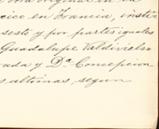 original en la
cico en Francia, inste
sesto y por partes iguales
Guadalupe Valdivieles
rada y Dª Concepcion
s altinas, segun